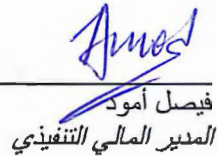 فيصل أمود
المدير المالي التنفيذي